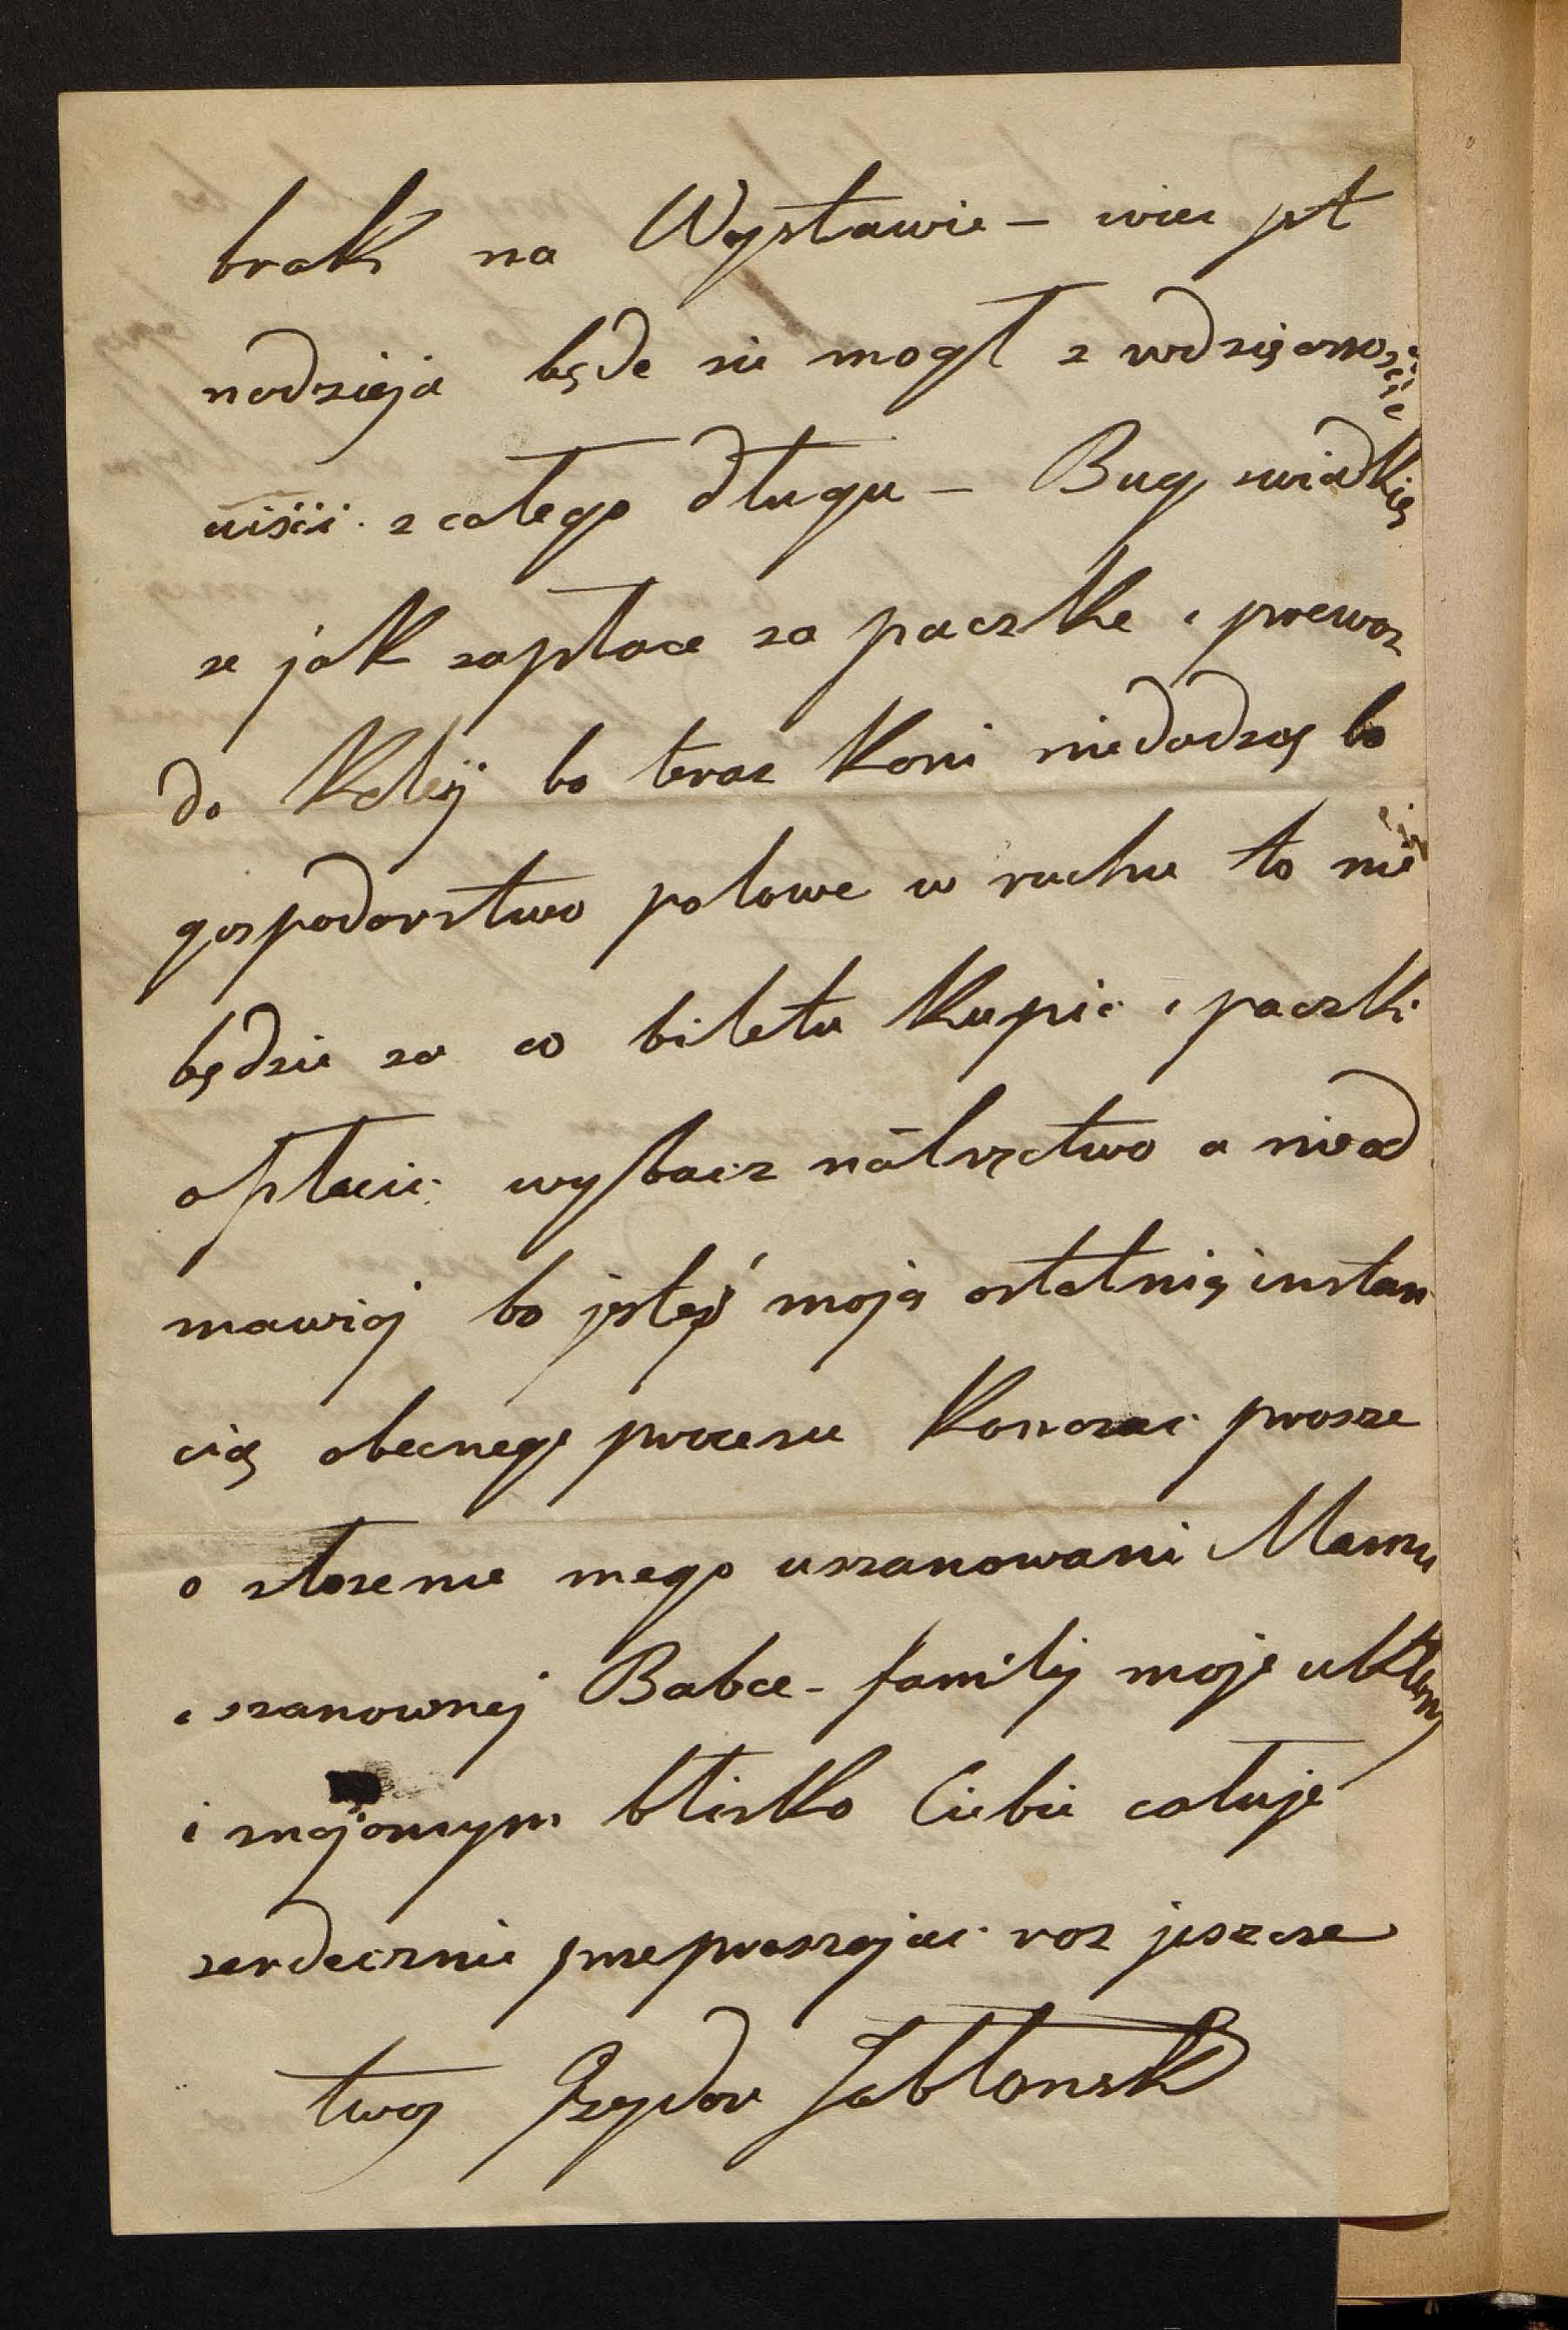 brak na Wystawie – wiec jest
nadzieja będe sie mogł z wdzięcznoscie
uiscic z całego długu – Bug swiadkię
ze jak zapłace za paczke i przewoz
do Koleij bo teraz Koni niedadzą bo
gospodarstwo polowe w ruchu to nie
będzie za co biletu Kupic i paczki
opłacic wybacz natręctwo a nieod
mawiaj bo jesteś moją ostatnią instan
cią obecnego procesu Konczac prosze
o złozenie mego uszanowani Mamie
i szanownej Babce – familij moje ukłony
i znajomym blisko Ciebie całuje
serdecznie przepraszajac raz jeszcze
twoj Izydor Jabłonski